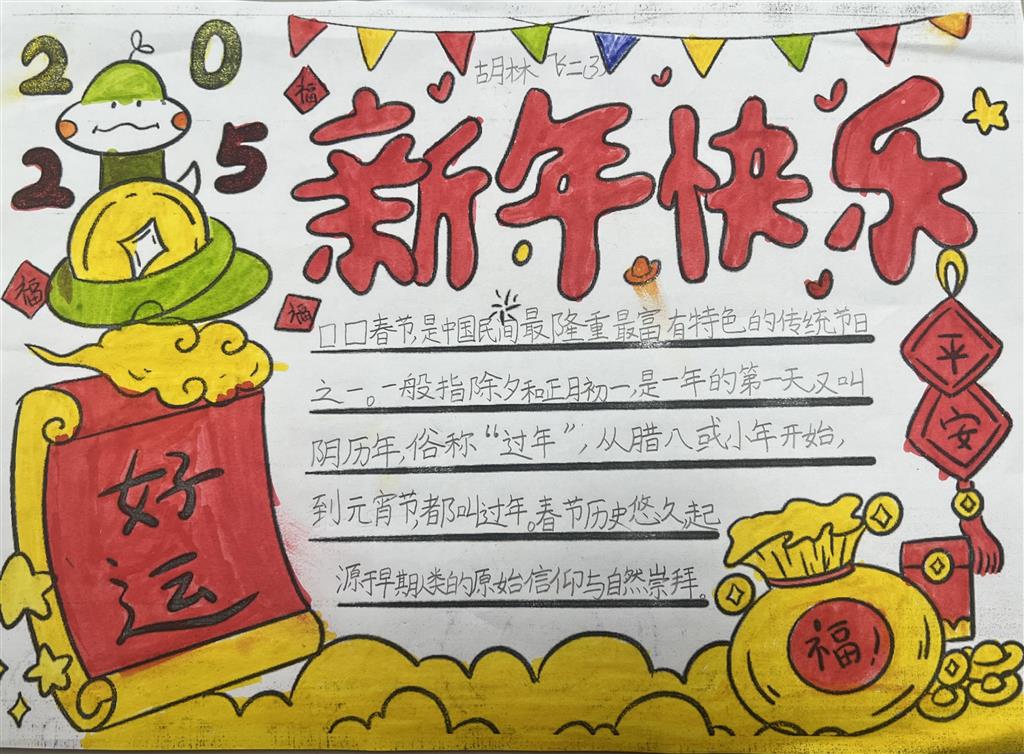 20
25
胡林飞二(3)
福
新年快乐
福
福
口口春节,是中国民间最隆重最富有特色的传统节日
之一。一般指除夕和正月初一,是一年的第一天,又叫
阴历年,俗称“过年”,从腊八或小年开始,
到元宵节,都叫过年。春节历史悠久,起
源于早期人类的原始信仰与自然崇拜。
好
运
平
安
福!